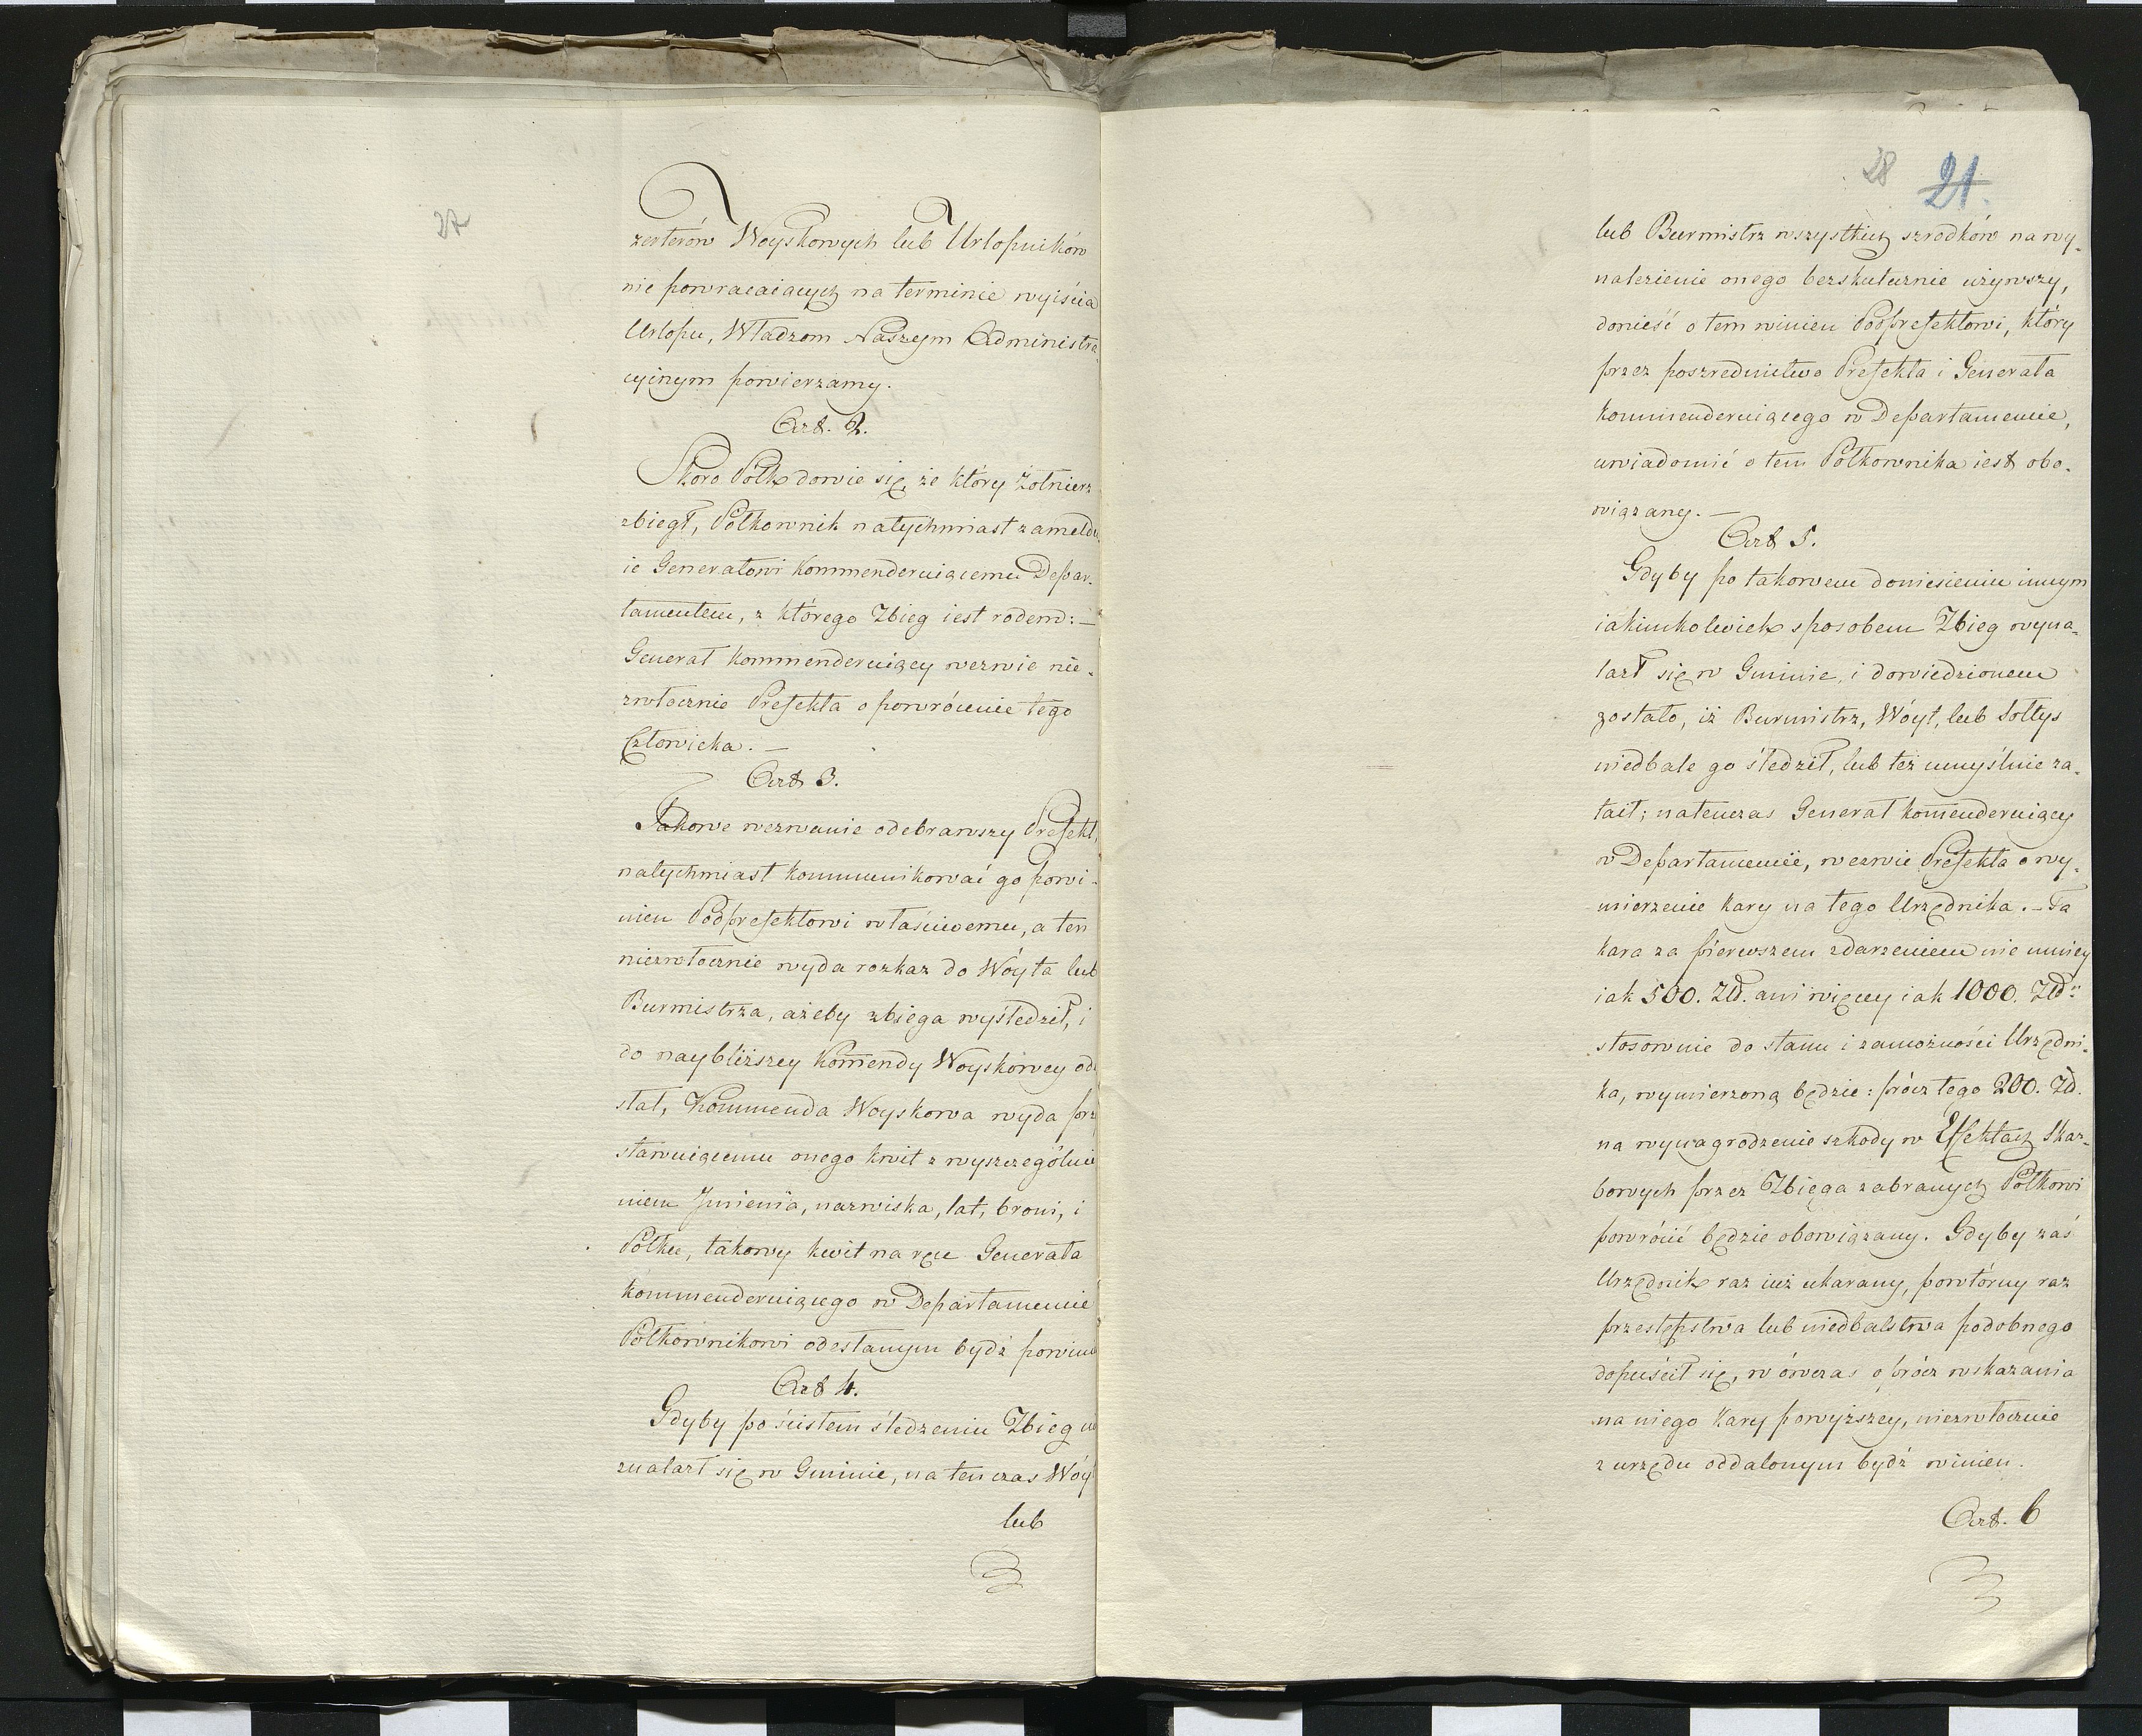 27
zerterów Woyskowych lub Urlopników
nie powracaiących na terminie wyiścia
Urlopu, Władzom Naszym Administra-
cyinym powierzamy.
Art. 2.
Skoro Połk dowie się, że który żołnierz
zbiegł, Połkownik natychmiast zameldu-
ie Generałowi kommenderuiącemu Depar-
tamentem, z którego Zbieg iest rodem: –
Generał kommenderuiący wezwie nie-
zwłocznie Prefekta o powrócenie tego
Człowieka. –
Art 3.
Takowe wezwanie odebrawszy Prefekt,
natychmiast kommunikować go powi-
nien Podprefektowi właściwemu, a ten
niezwłocznie wyda rozkaz do Wóyta lub
Burmistrza, ażeby zbiega wyśledził, i
do naybliższey Komendy Woyskowey ode
stał, Kommenda Woyskowa wyda prz
stawuiącemu onego kwit z wyszczególnie
niem Jmienia, nazwiska, lat, broni, i
Połku, takowy kwit na ręce Generała
kommenderuiącego w Departamencie
Połkownikowi odesłanym bydź powinie
Art 4.
Gdyby po ścisłem śledzeniu Zbieg nie
znalazł się w Gminie, na ten czas Wóyt
lub
28 21.
lub Burmistrz wszystkich szrodków na wy-
nalezienie onego bezskutecznie używszy,
donieść o tem winien Podprefektowi, który
przez poszrednictwo Prefekta i Generała
kommenderuiącego w Departamencie,
uwiadomić o tem Połkownika iest obo-
wiązany. –
Art 5.
Gdyby po takowem doniesieniu innym
iakimkolwiek sposobem Zbieg wyna-
lazł się w Gminie, i dowiedzionem
zostało, iż Burmistrz, Wóyt, lub Sołtys
niedbale go śledził, lub też umyślnie za-
taił; natenczas Generał kommenderuiący
w Departamencie, wezwie Prefekta o wy-
mierzenie kary na tego Urzędnika. – Ta
kara za pierwszem zdarzeniem nie mniey
iak 500. Złł. ani więcey iak 1000. Złł:
stosownie do stanu i zamożności Urzędni-
ka, wymierzoną będzie: prócz tego 200. Zł.
na wynagrodzenie szkody w Effektach Skar-
bowych przez Zbiega zabranych Połkowi
powrócić będzie obowiązany. Gdyby zaś
Urzędnik raz iuż ukarany, powtórny raz
przestępstwa lub niedbalstwa podobnego
dopuścił się, w ówczas oprócz wskazania
na niego kary powyższey, niezwłocznie
z urzędu oddalonym bydź winien.
Art. 6